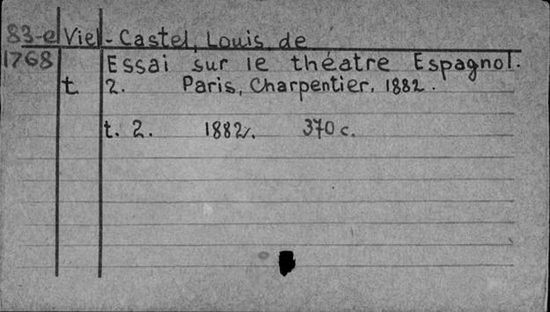 83-е Viel-Castel, Louis, de
1768 Essai sur le théatre Espagnol.
t 2. Paris, Charpentier, 1882.
t. 2. 1882. 370 c.